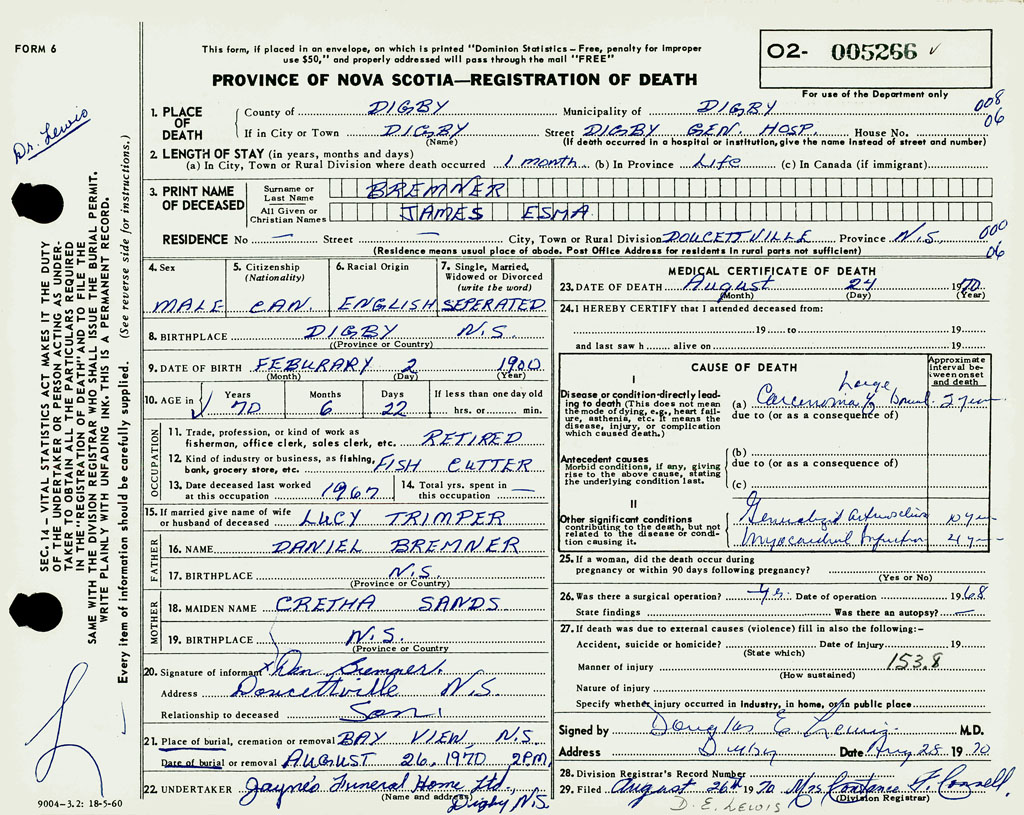 FORM 6
This form, if placed in an envelope, on which is printed "Dominion Statistics – Free, penalty for improper
use $50," and properly addressed will pass through the mail "FREE"
PROVINCE OF NOVA SCOTIA—REGISTRATION OF DEATH
O2- 005266 v
For use of the Department only
Dr. Lewis
SEC. 14 – VITAL STATISTICS ACT MAKES IT THE DUTY
OF THE UNDERTAKER OR PERSON ACTING AS UNDER-
TAKER TO OBTAIN ALL THE PARTICULARS REQUIRED
IN THE "REGISTRATION OF DEATH" AND TO FILE THE
SAME WITH THE DIVISION REGISTRAR WHO SHALL ISSUE THE BURIAL PERMIT.
WRITE PLAINLY WITH UNFADING INK. THIS IS A PERMANENT RECORD.
Every item of information should be carefully supplied. (See reverse side for instructions.)
1. PLACE OF DEATH County of DIGBY Municipality of DIGBY 008 06
If in City or Town DIGBY Street DIGBY GEN. HOSP. House No.
(Name) (If death occurred in a hospital or institution, give the name instead of street and number)
2. LENGTH OF STAY (in years, months and days)
(a) In City, Town or Rural Division where death occurred 1 month (b) In Province Life (c) In Canada (if immigrant)
3. PRINT NAME OF DECEASED Surname or Last Name BREMNER
All Given or Christian Names JAMES ESMA
RESIDENCE No — Street — City, Town or Rural Division DOUCETTVILLE Province N.S. 000 06
(Residence means usual place of abode. Post Office Address for residents in rural parts not sufficient)
4. Sex 5. Citizenship (Nationality) 6. Racial Origin 7. Single, Married, Widowed or Divorced (write the word)
MALE CAN. ENGLISH SEPERATED
8. BIRTHPLACE DIGBY N.S.
(Province or Country)
9. DATE OF BIRTH FEBURARY 2 1900
(Month) (Day) (Year)
10. AGE in Years 70 Months 6 Days 22 If less than one day old hrs. or min.
OCCUPATION
11. Trade, profession, or kind of work as
fisherman, office clerk, sales clerk, etc. RETIRED
12. Kind of industry or business, as fishing,
bank, grocery store, etc. FISH CUTTER
13. Date deceased last worked
at this occupation 1967 14. Total yrs. spent in
this occupation —
15. If married give name of wife
or husband of deceased LUCY TRIMPER
FATHER
16. NAME DANIEL BREMNER
17. BIRTHPLACE N.S.
(Province or Country)
MOTHER
18. MAIDEN NAME CRETHA SANDS
19. BIRTHPLACE N.S.
(Province or Country)
20. Signature of informant x Dan
Address Doucettville N.S.
Relationship to deceased Son
21. Place of burial, cremation or removal BAY VIEW, N.S.
Date of burial or removal AUGUST 26, 1970 2PM.
22. UNDERTAKER Jayne's Funeral Home Ltd.,
(Name and address) Digby N.S.
9004-3.2: 18-5-60
MEDICAL CERTIFICATE OF DEATH
23. DATE OF DEATH August 24 1970
(Month) (Day) (Year)
24. I HEREBY CERTIFY that I attended deceased from:
19 to 19
and last saw h alive on 19
CAUSE OF DEATH
Approximate interval between onset and death
I
Disease or condition directly leading to death (This does not mean the mode of dying, e.g., heart failure, asthenia, etc. It means the disease, injury, or complication which caused death.)
(a) Large Carcinoma of Bowel 2 year
due to (or as a consequence of)
Antecedent causes
Morbid conditions, if any, giving rise to the above cause, stating the underlying condition last.
(b)
due to (or as a consequence of)
(c)
II
Other significant conditions contributing to the death, but not related to the disease or condition causing it.
Generalized 10 year
Myocardial Infarction 4 year
25. If a woman, did the death occur during
pregnancy or within 90 days following pregnancy?
(Yes or No)
26. Was there a surgical operation? Yes Date of operation 1968
State findings Was there an autopsy? —
27. If death was due to external causes (violence) fill in also the following:–
Accident, suicide or homicide? Date of injury 19
(State which)
Manner of injury 153.8
(How sustained)
Nature of injury
Specify whether injury occurred in industry, in home, or in public place
Signed by Douglas E Lewis M.D.
Address Digby Date Aug 28 1970
28. Division Registrar's Record Number
29. Filed August 26th 1970 Mrs Constance F. Connell
(Division Registrar)
D. E. LEWIS